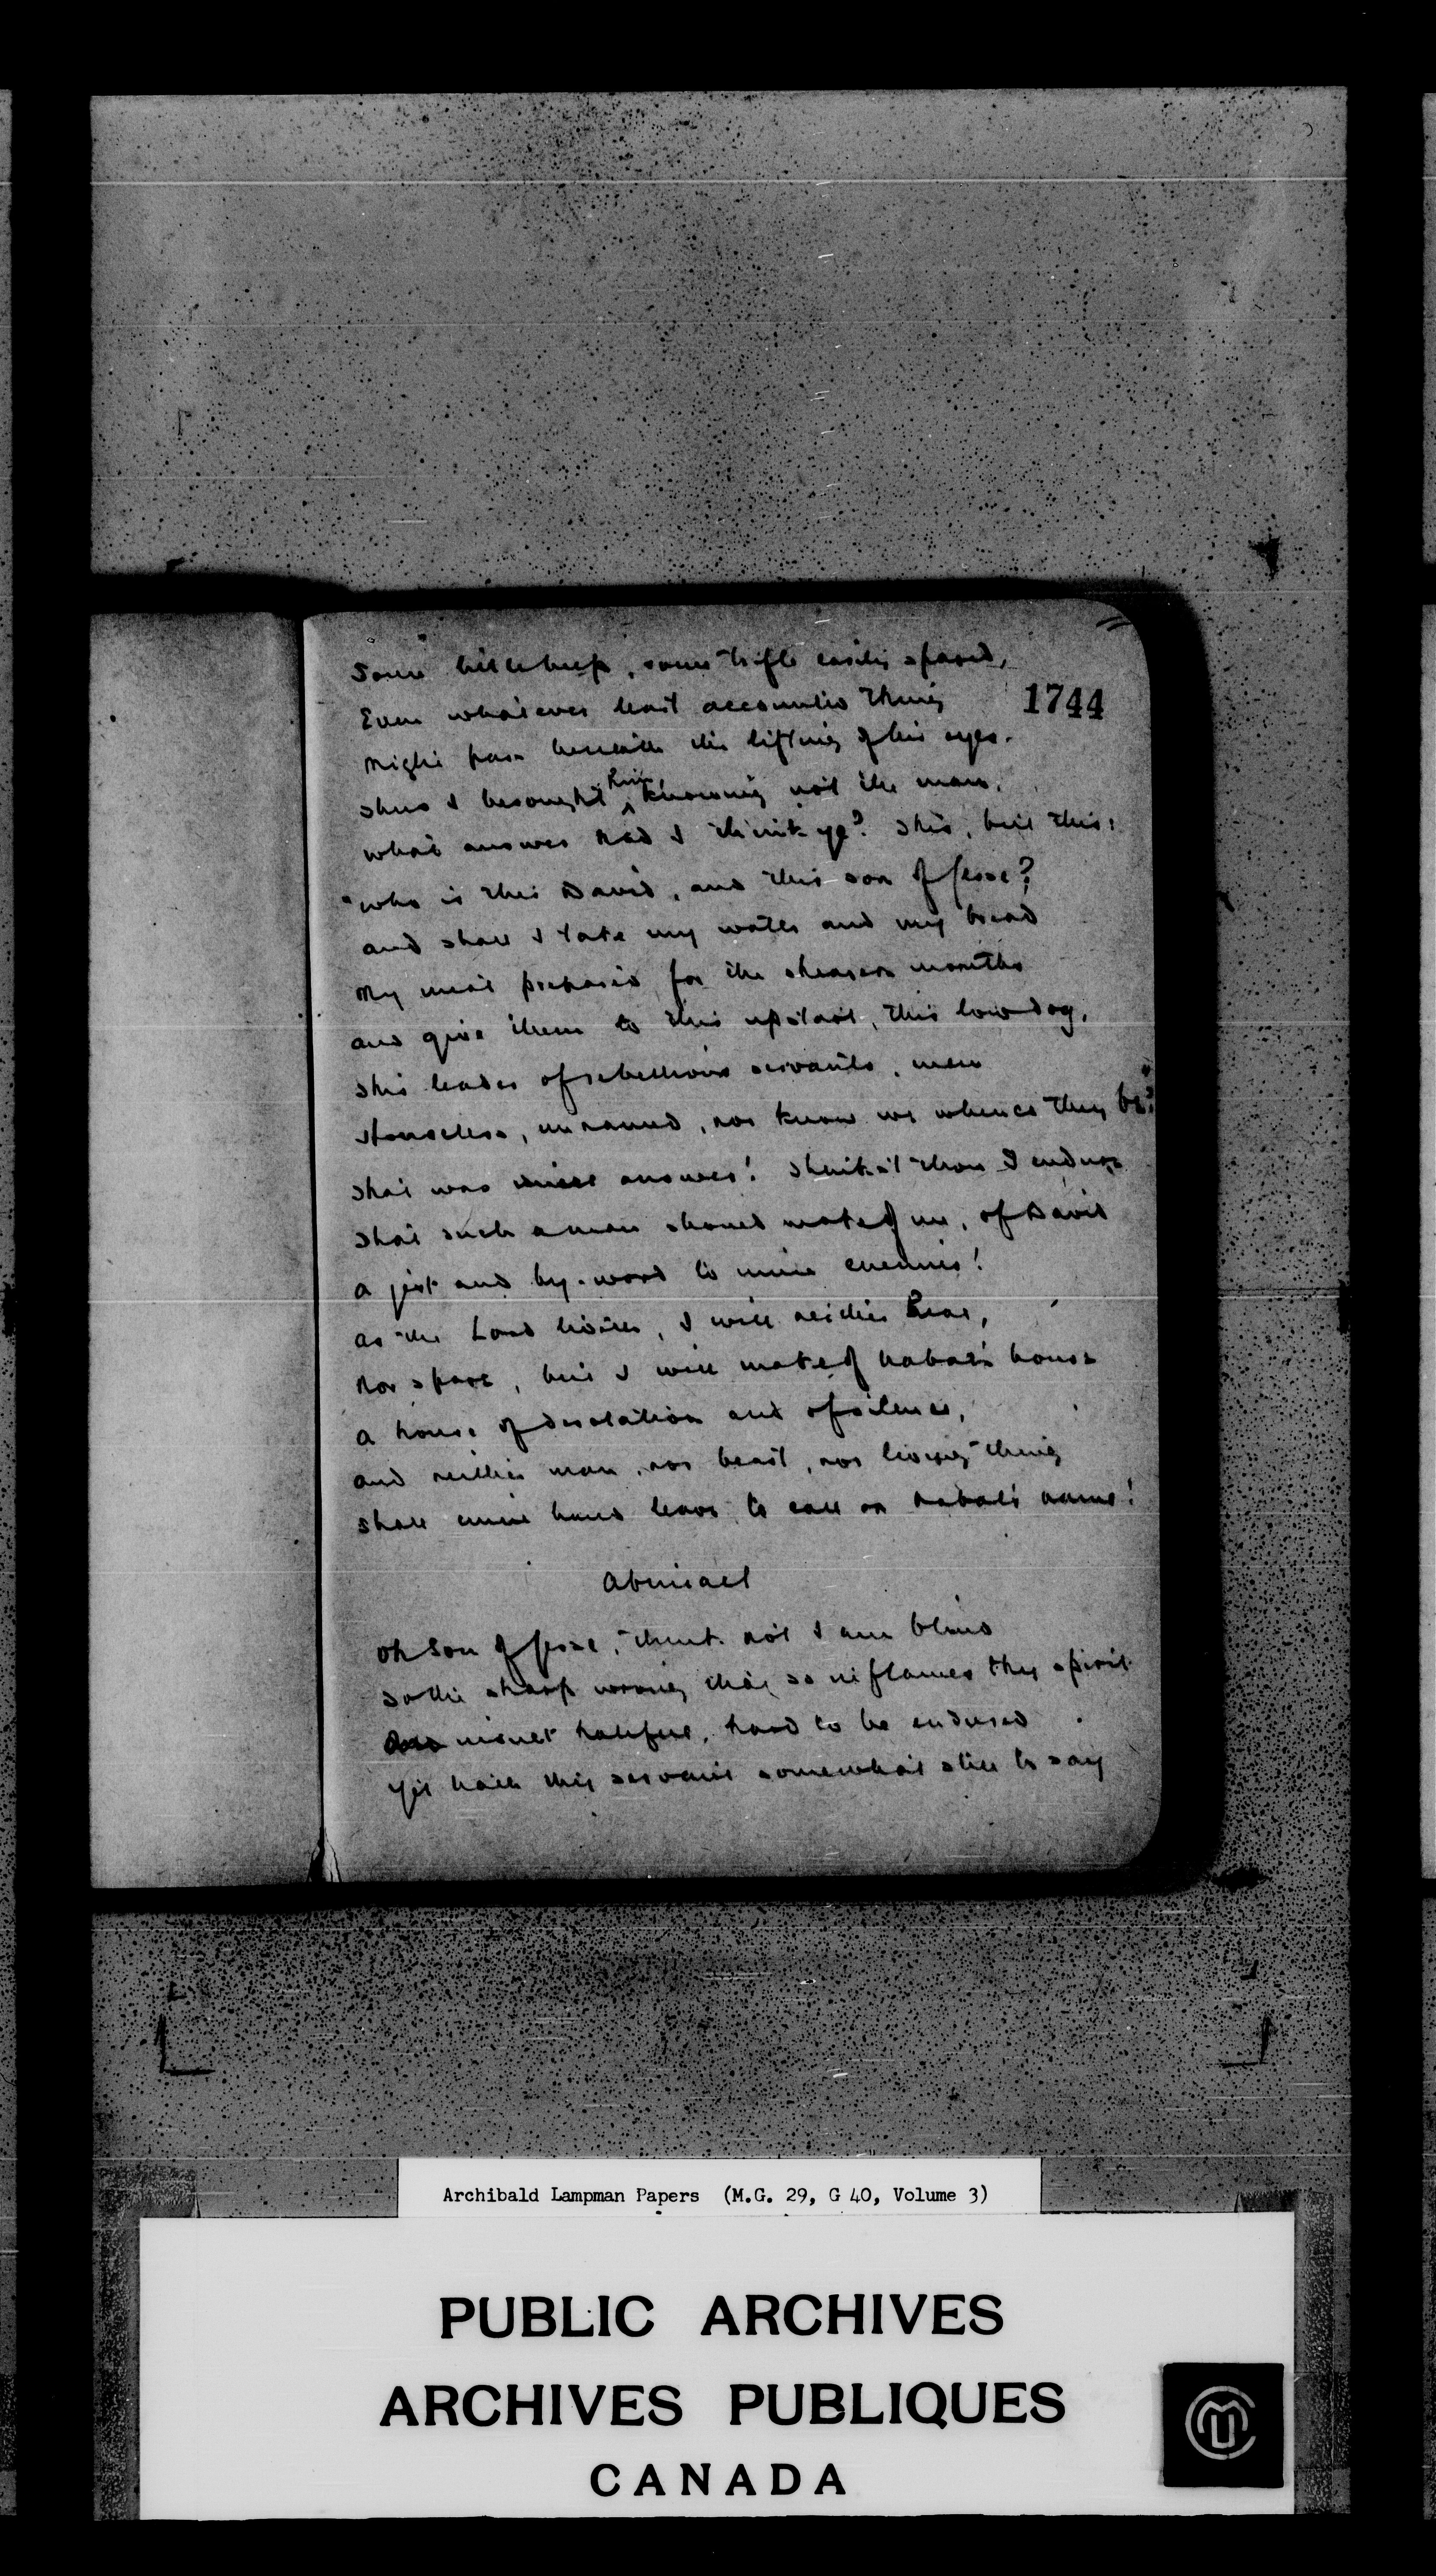 Some little help, some trifle easily spared,
Even whatever least accounted thing
1744
Might pass beneath the lifting of his eyes.
Thus I besought him knowing not the man.
What answer had I think ye? This, but this:
"Who is this David, and this son of Jesse?
And shall I take my water and my bread
My meat prepared for the shearers mouths
And give them to this upstart, this low dog,
This leader of rebellious servants, men
Houseless, unnamed, nor know we whence they be?"
That was answer! Think'st thou I endure
That such a man should make of me, of David
A jest and by-word to mine enemies!
As the Lord liveth, I will neither hear,
Nor spare, but I will make of Nabal's house
A house of desolation and of silence,
And neither man, nor beast, nor living thing
Shall mine hand leave to call on Nabal's name!
Abigail
Oh Son of Jesse, think not I am blind
To the sharp wrong that so inflames thy spirit
most hateful, hard to be endured
Yet hath thy servant somewhat still to say
Archibald Lampman Papers (M.G. 29, G 40, Volume 3)
PUBLIC ARCHIVES
ARCHIVES PUBLIQUES
CANADA